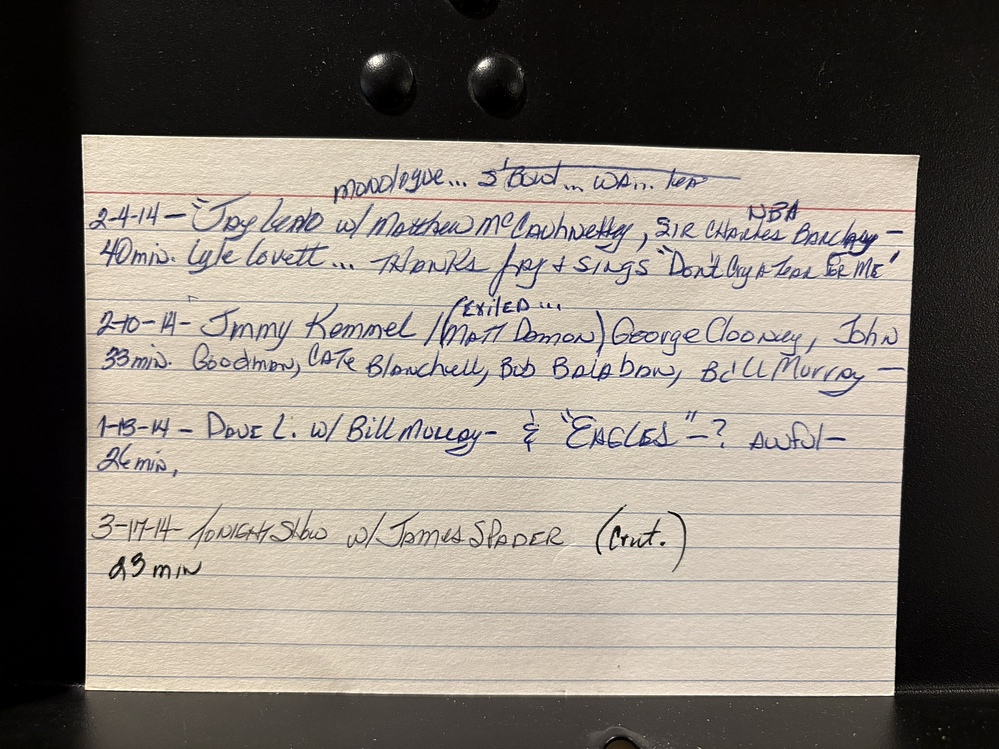 monologue... S'Bowl... WA...
2-4-14 - "Jay Leno w/ Matthew McCauhnehy, SIR CHARLES BARClay - NBA
40 min. Lyle Lovett... THANKS Jay + SINGS "Don't Cry A Tear FER ME"
(EXILED...
2-10-14 - Jimmy Kemmel / (MATT Damon) George Clooney, John
33 min. Goodman, CATE Blanchell, Bob BALABAN, Bill Murray -
1-13-14 - Dave L. w/ Bill Murray - & "EAGLES" - ? AWFul -
26 min.
3-17-14 - TONIGHT Show w/ JAMES SPADER (Cont.)
23 min